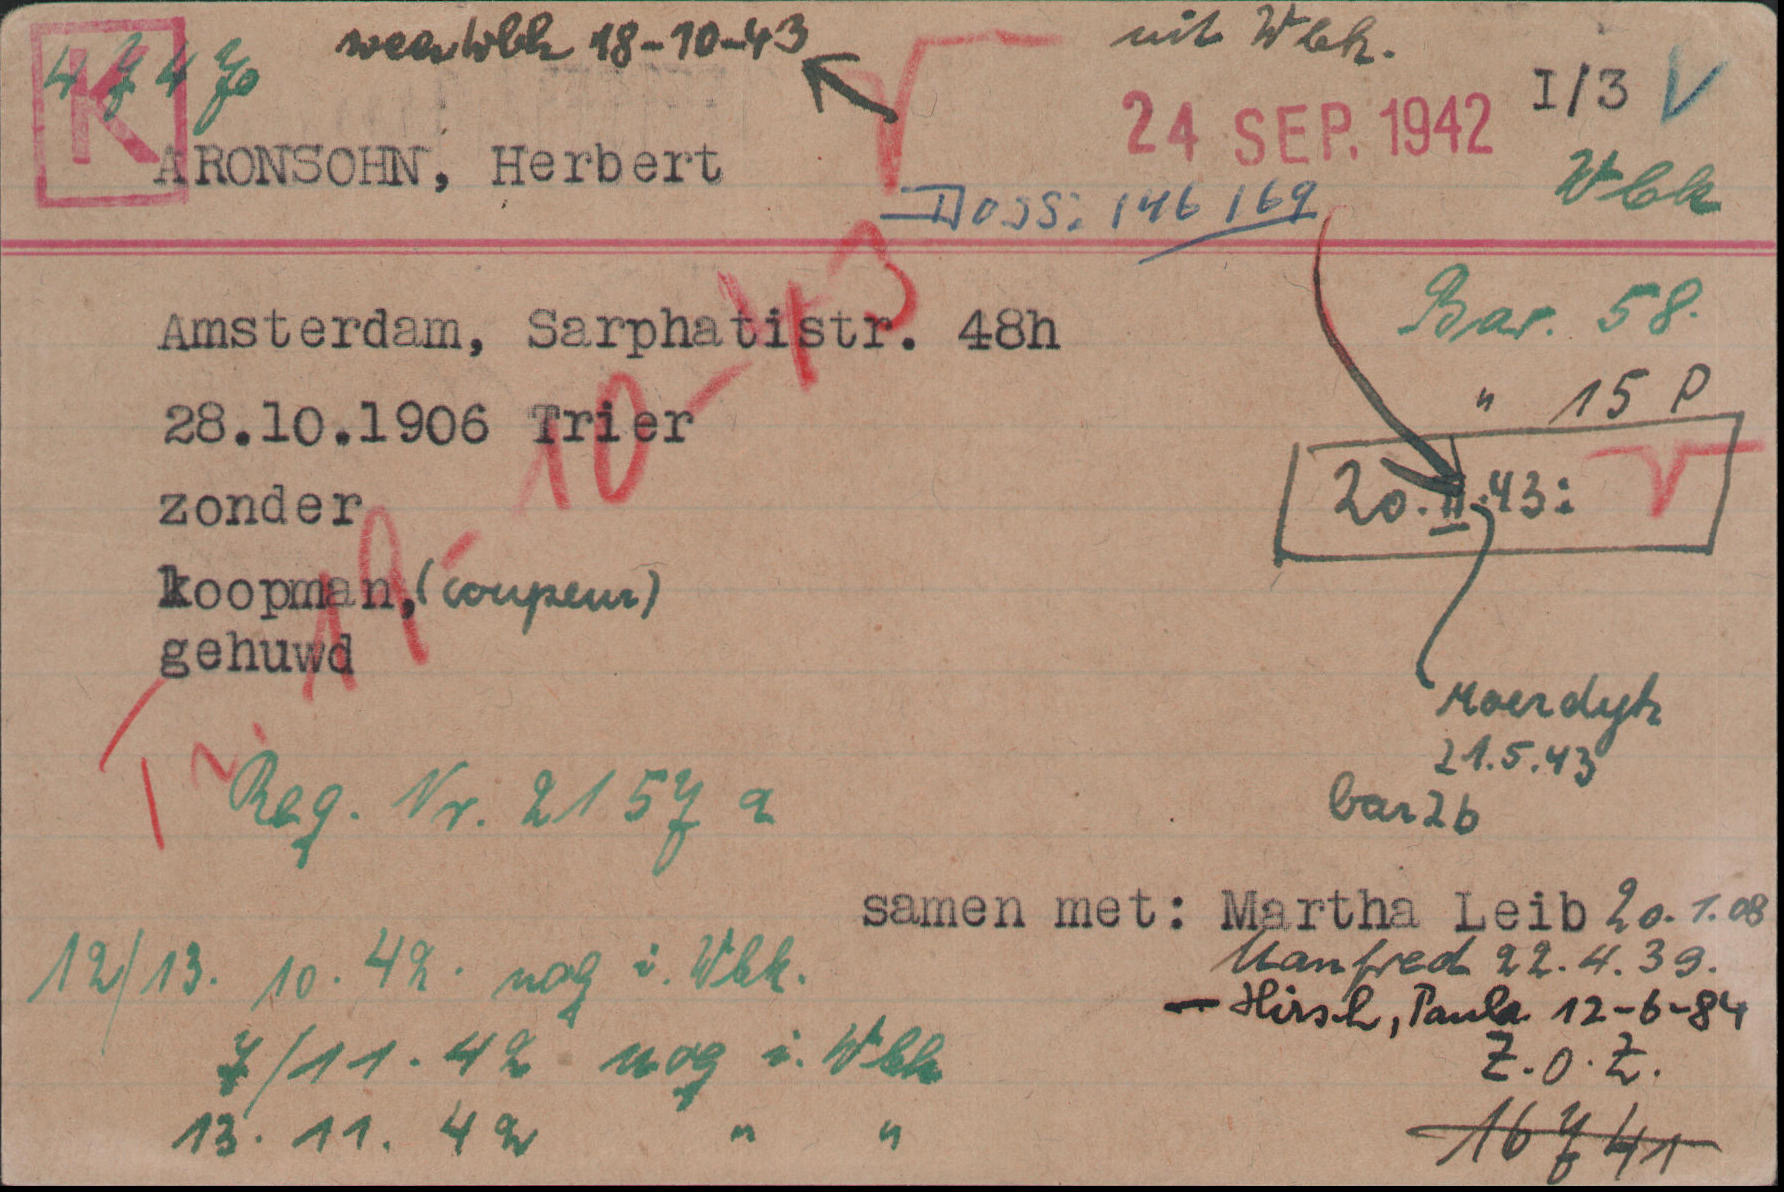 weer Wbk 18-10-43
uit Wbk.
K
4747
I/3 V
24 SEP. 1942
ARONSOHN, Herbert
Wbk
Doss: 146 169
Bar. 58.
Amsterdam, Sarphatistr. 48h
" 15 P
28.10.1906 Trier
20.II.43:
zonder
19-10-43
koopman, (coupeur)
gehuwd
Moerdyk
21.5.43
Reg. Nr. 2157 a
bar 26
samen met: Martha Leib 20.1.08
Manfred 22.4.39.
12/13. 10. 42. nog i. Wbk.
- Hirsch, Paula 12-6-84
7/11. 42 nog i. Wbk
Z.O.Z.
13. 11. 42 " "
16741